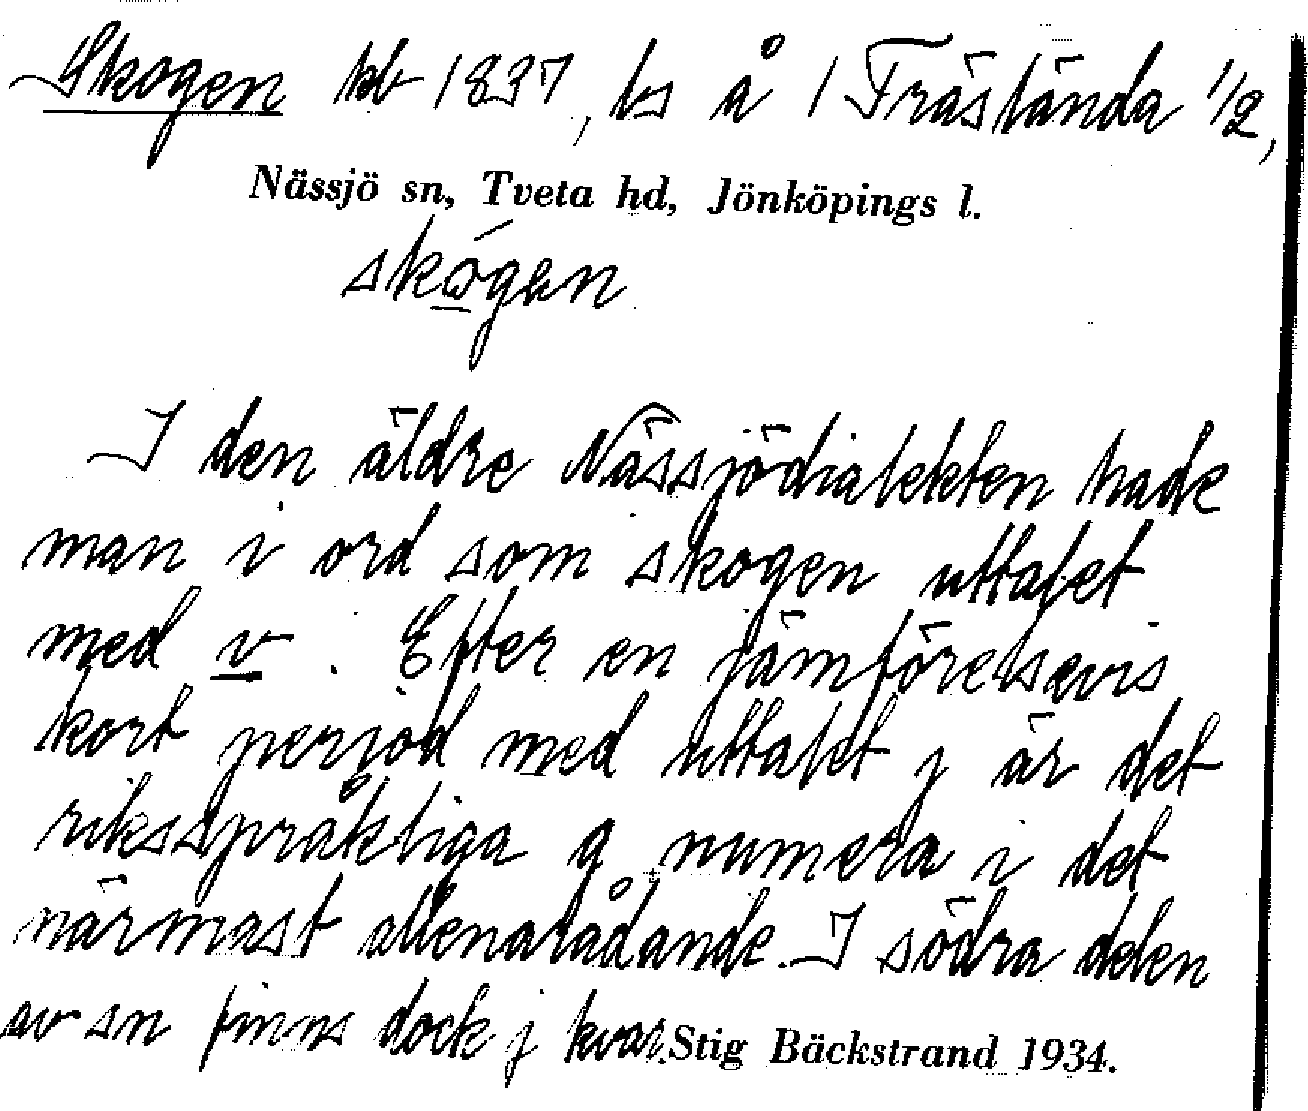 Skogen kb 1837, ls å 1 Fräslända 1/2,
Nässjö sn, Tveta hd, Jönköpings l.
skógen
I den äldre Nässjödialekten hade
man i ord som skogen uttalet
med v. Efter en jämförelsevis
kort period med uttalet j är det
riksspråkliga g numera i det
närmast allenarådande. I södra delen
av sn finns dock j kvar. Stig Bäckstrand 1934.